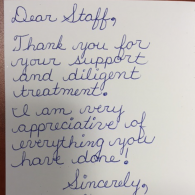 Dear Staff,
Thank you for
your support
and diligent
treatment.
I am very
appreciative of
everything you
have done!
Sincerely,